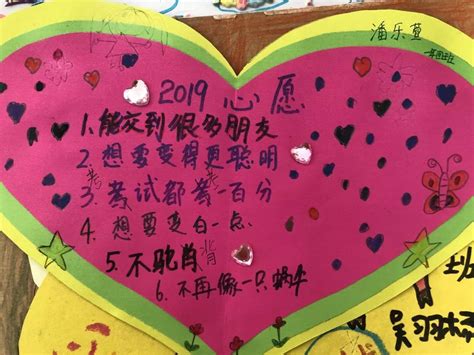 潘乐萱
一年四班
2019 心愿
1.能交到很多朋友
2.想要变得更聪明
考
3.考试都考一百分
4.想要变白一点
背
5.不驼肖
6.不再像一只蜗牛
吴羽